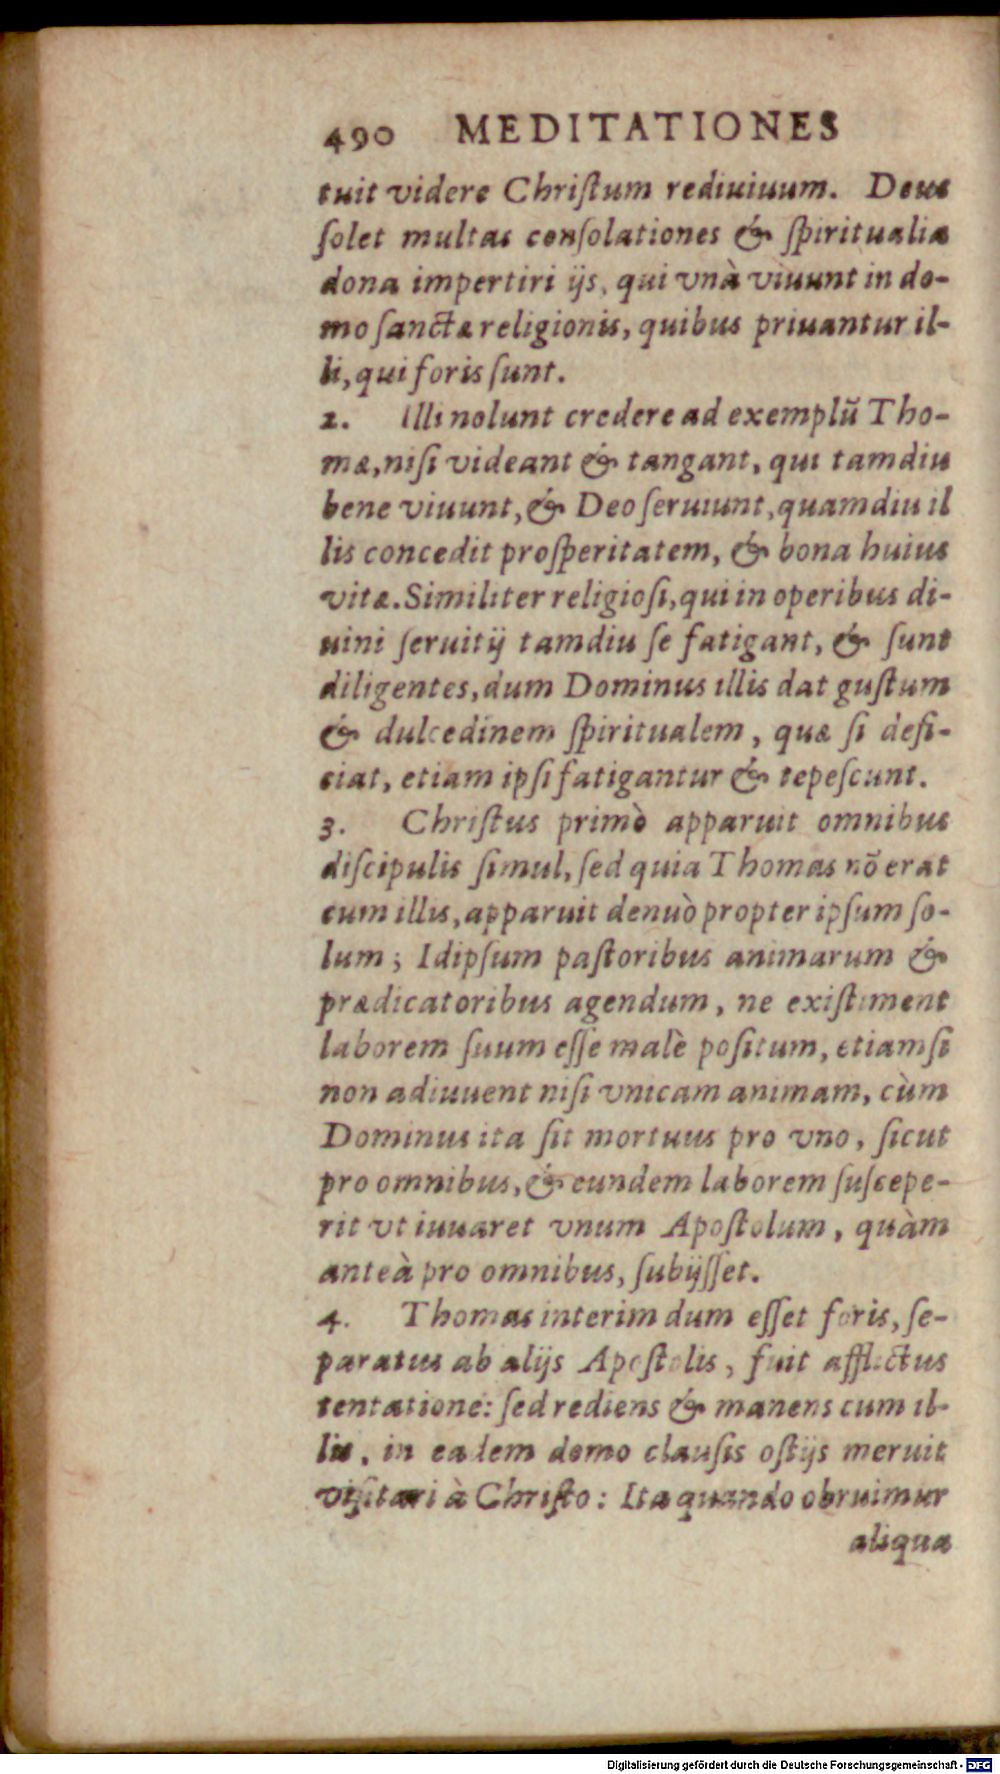 490 MEDITATIONES
tuit videre Chriſtum rediuiuum. Deus
ſolet multas conſolationes & ſpiritualia
dona impertiri ijs, qui vnà viuunt in do-
mo ſanctæ religionis, quibus priuantur il-
li, qui foris ſunt.
2. Illi nolunt credere ad exemplū Tho-
mæ, niſi videant & tangant, qui tamdiu
bene viuunt, & Deo ſeruiunt, quamdiu il
lis concedit proſperitatem, & bona huius
vitæ. Similiter religioſi, qui in operibus di-
uini ſeruitij tamdiu ſe fatigant, & ſunt
diligentes, dum Dominus illis dat guſtum
& dulcedinem ſpiritualem, quæ ſi defi-
ciat, etiam ipſi fatigantur & tepeſcunt.
3. Chriſtus primò apparuit omnibus
diſcipulis ſimul, ſed quia Thomas nō erat
cum illis, apparuit denuò propter ipſum ſo-
lum; Idipſum paſtoribus animarum &
prædicatoribus agendum, ne exiſtiment
laborem ſuum eſſe malè poſitum, etiamſi
non adiuuent niſi vnicam animam, cùm
Dominus ita ſit mortuus pro vno, ſicut
pro omnibus, & eundem laborem ſuſcepe-
rit vt iuuaret vnum Apoſtolum, quàm
anteà pro omnibus, ſubijſſet.
4. Thomas interim dum eſſet foris, ſe-
paratus ab alijs Apoſtolis, fuit afflictus
tentatione: ſed rediens & manens cum il-
lis, in eadem domo clauſis oſtijs meruit
viſitari à Chriſto: Ita quando obruimur
aliqua
Digitalisierung gefördert durch die Deutsche Forschungsgemeinschaft - DFG